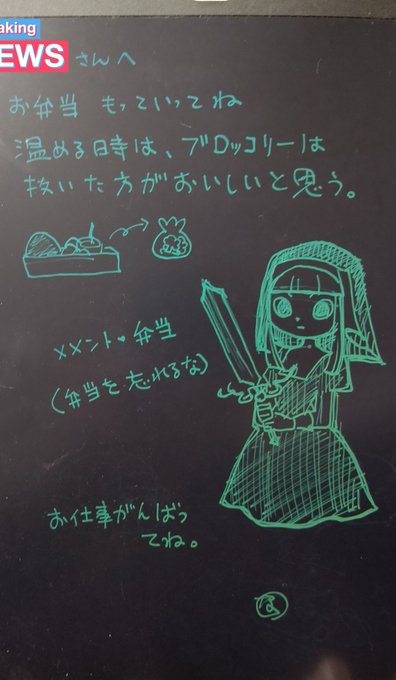 aking
EWS さんへ
お弁当 もっていってね
温める時は、ブロッコリーは
抜いた方がおいしいと思う。
メメント・弁当
(弁当を忘れるな)
お仕事がんばっ
てね。
は